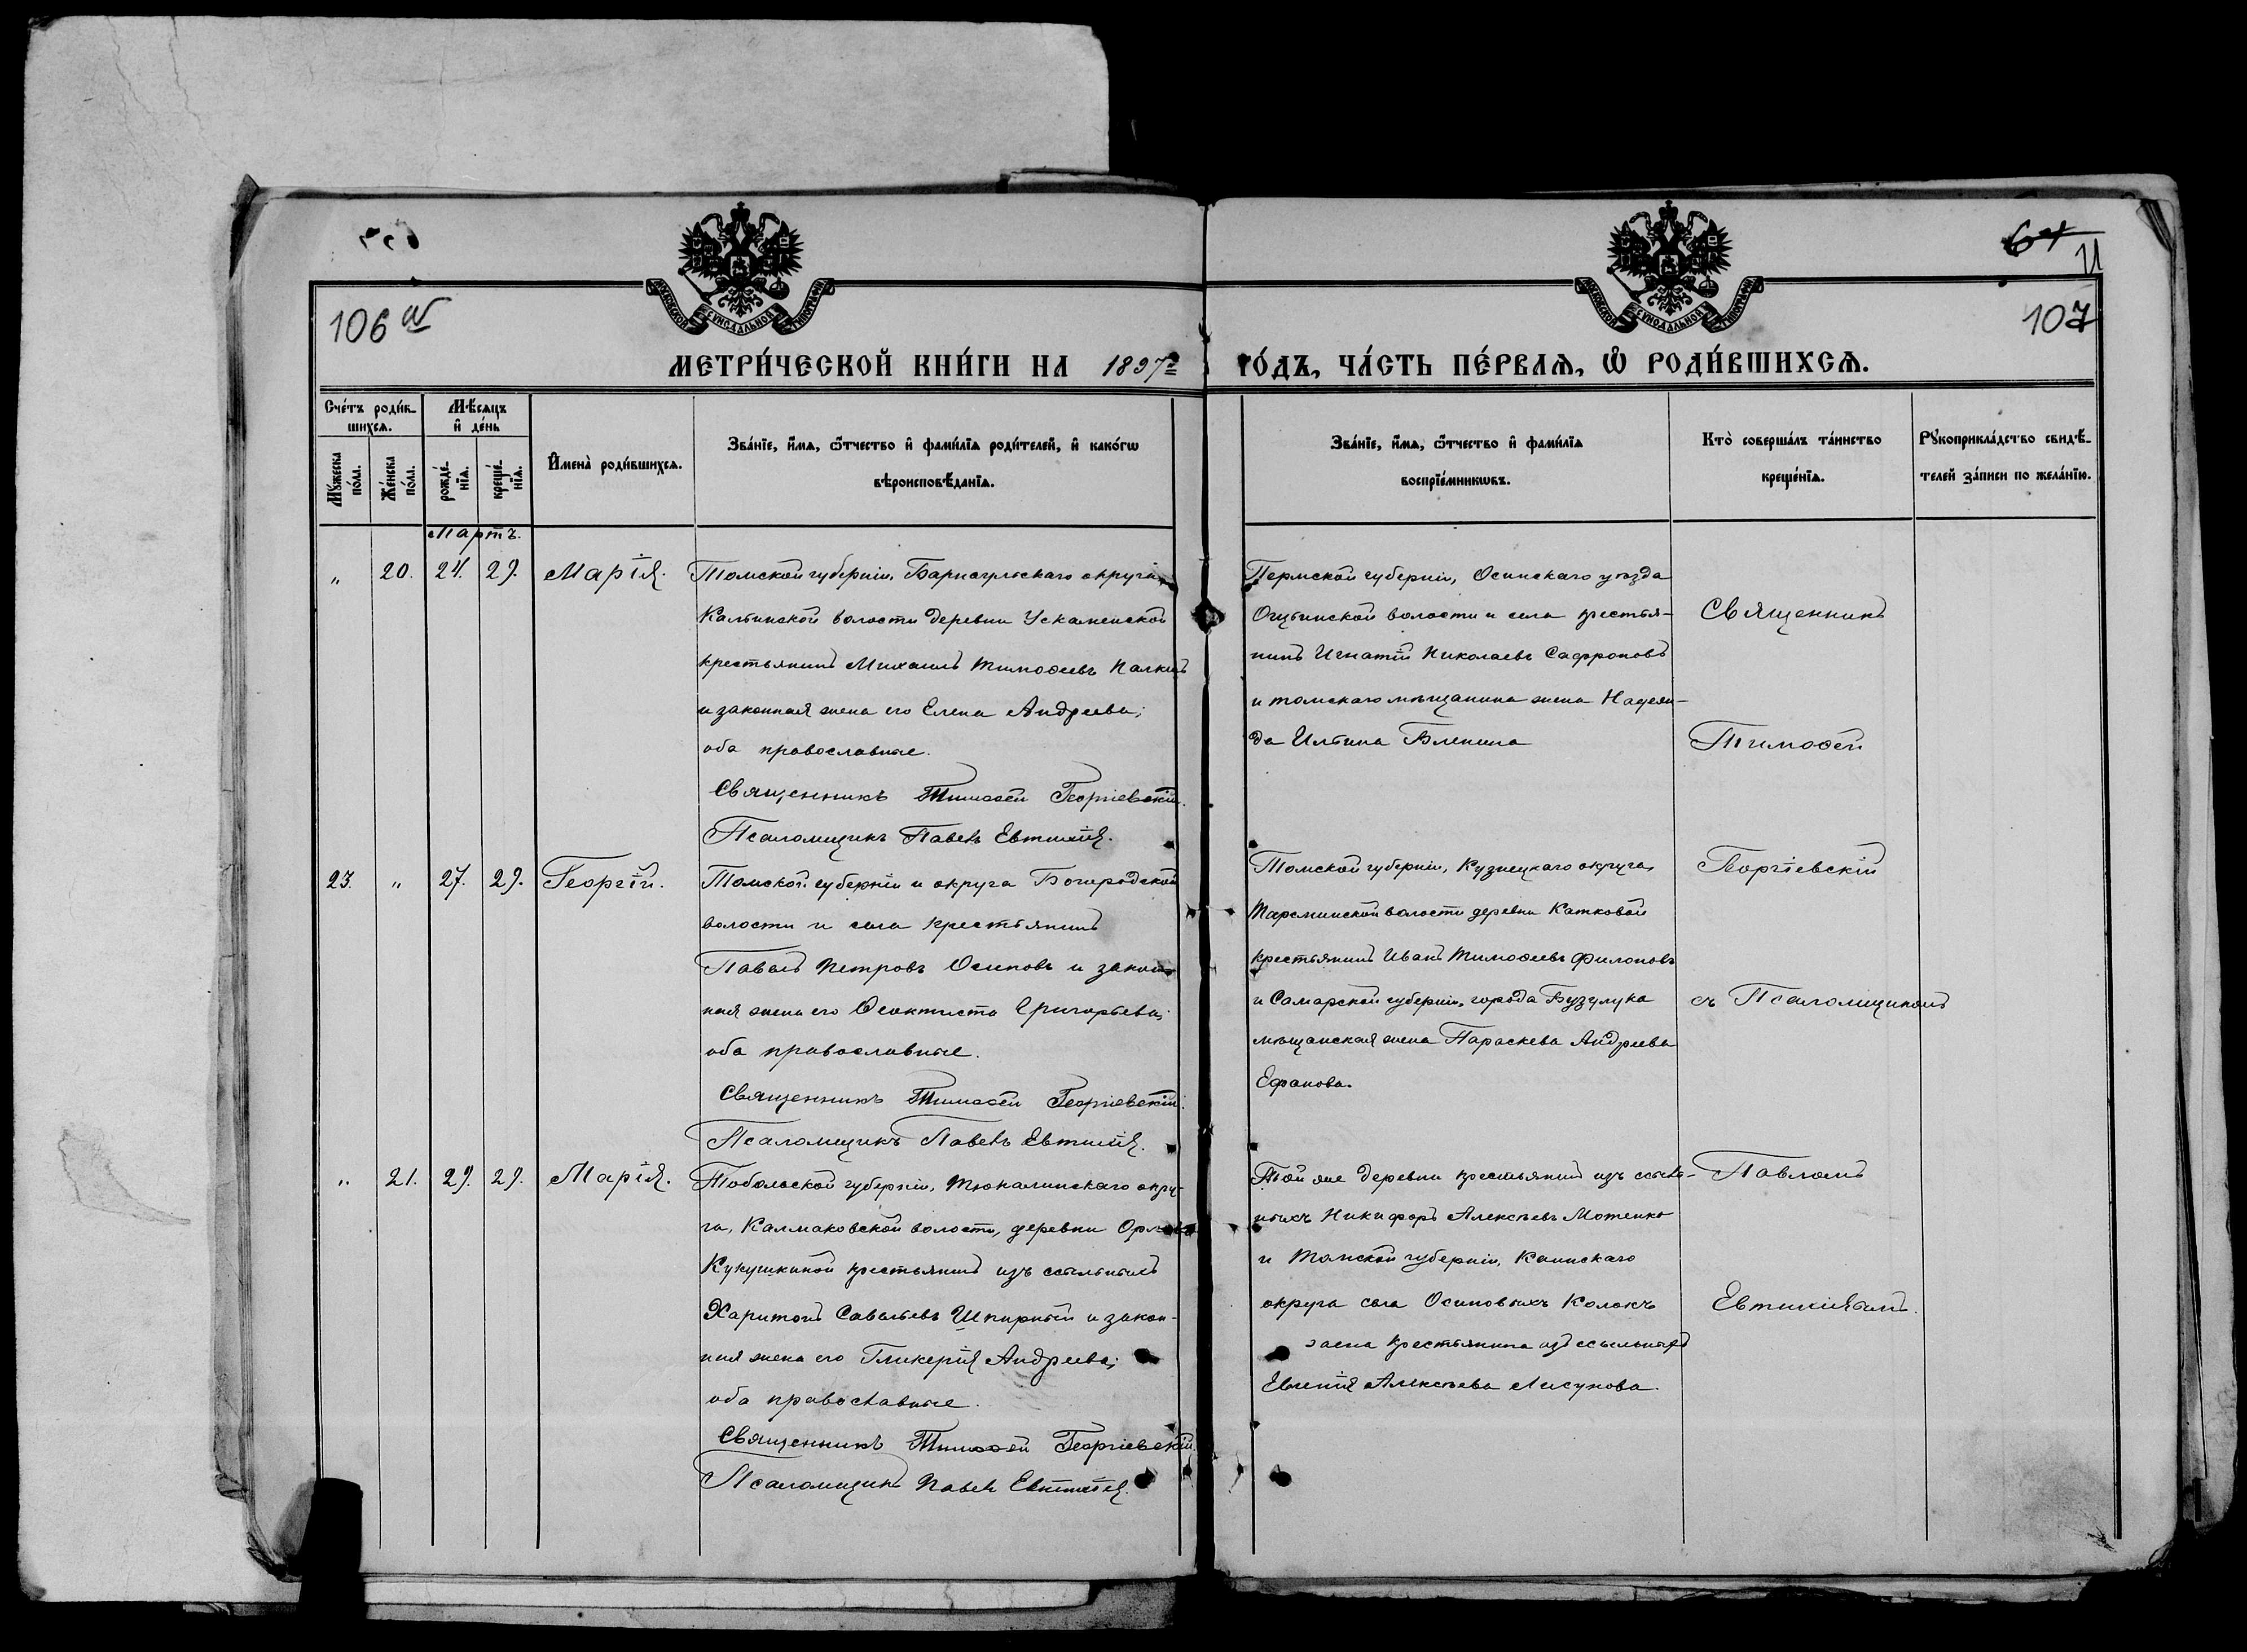 64
11
106 об
107
МОСКОВСКОЙ СѴНОДАЛЬНОЙ ТИПОГРАФІИ
МОСКОВСКОЙ СѴНОДАЛЬНОЙ ТИПОГРАФІИ
МЕТРИ́ЧЕСКОЙ КНИ́ГИ НА 1897й ГО́ДЪ, ЧА́СТЬ ПЕ́РВАѦ, Ѽ РОДИ́ВШИХСѦ.
Сче́тъ роди́в-
шихсѧ.
Мꙋ́жеска по́ла.
Же́нска по́ла.
Мѣ́сѧцъ
и҆ де́нь
рожде́-
нїѧ.
креще́-
нїѧ.
И҆мена̀ роди́вшихсѧ.
Зва́нїе, и҆́мѧ, ѻ҆́тчество и҆ фами́лїѧ роди́телей, и҆ како́гѡ
вѣроисповѣ́данїѧ.
Зва́нїе, и҆́мѧ, ѻ҆́тчество и҆ фами́лїѧ
воспрїе́мникѡвъ.
Кто̀ соверша́лъ та́инство
креще́нїѧ.
Рꙋкоприкла́дство свидѣ́-
телей за́писи по жела́нїю.
Мартъ.
" 20. 24. 29. Марія.
Томской губерніи, Барнаульскаго округа
волости деревни Ускаменской
крестьянинъ Михаилъ Тимоѳеевъ Палкинъ
и законная жена его Елена Андреева;
оба православные.
Священникъ Тимоѳей Георгіевскій.
Псаломщикъ Павелъ Евтихіев.
Пермской губерніи, Осинскаго уѣзда
волости и села крестья-
нинъ Игнатій Николаевъ Сафроновъ
и томскаго мѣщанина жена Надеж-
да Ильина
Священникъ
Тимоѳей
23. " 27. 29. Георгій.
Томской губерніи и округа Богородской
волости и села крестьянинъ
Павелъ Петровъ Осиповъ и закон-
ная жена его Ѳеоктиста Григорьева;
оба православные.
Священникъ Тимоѳей Георгіевскій.
Псаломщикъ Павелъ Евтихіев.
Томской губерніи, Кузнецкаго округа,
Тарсминской волости деревни Катковой
крестьянинъ Иванъ Тимоѳеевъ Филоновъ
и Самарской губерніи, города Бузулука
мѣщанская жена Параскева Андреева
Ефанова.
Георгіевскій
съ Псаломщикомъ
" 21. 29. 29. Марія.
Тобольской губерніи, Тюкалинскаго окру-
га, Калмаковской волости, деревни
Кукушкиной крестьянинъ изъ ссыльныхъ
Харитонъ Савельевъ Шпирный и закон-
ная жена его Гликерія Андреева;
оба православные.
Священникъ Тимоѳей Георгіевскій.
Псаломщикъ Павелъ Евтихіев.
Той же деревни крестьянинъ изъ ссыль-
ныхъ Никифоръ Алексѣевъ Мотенко
и Томской губерніи, Каинскаго
округа села Осиновыхъ Колокъ
жена крестьянина изъ ссыльныхъ
Евгенія Алексѣева Лисунова.
Павломъ
Евтихіевымъ.